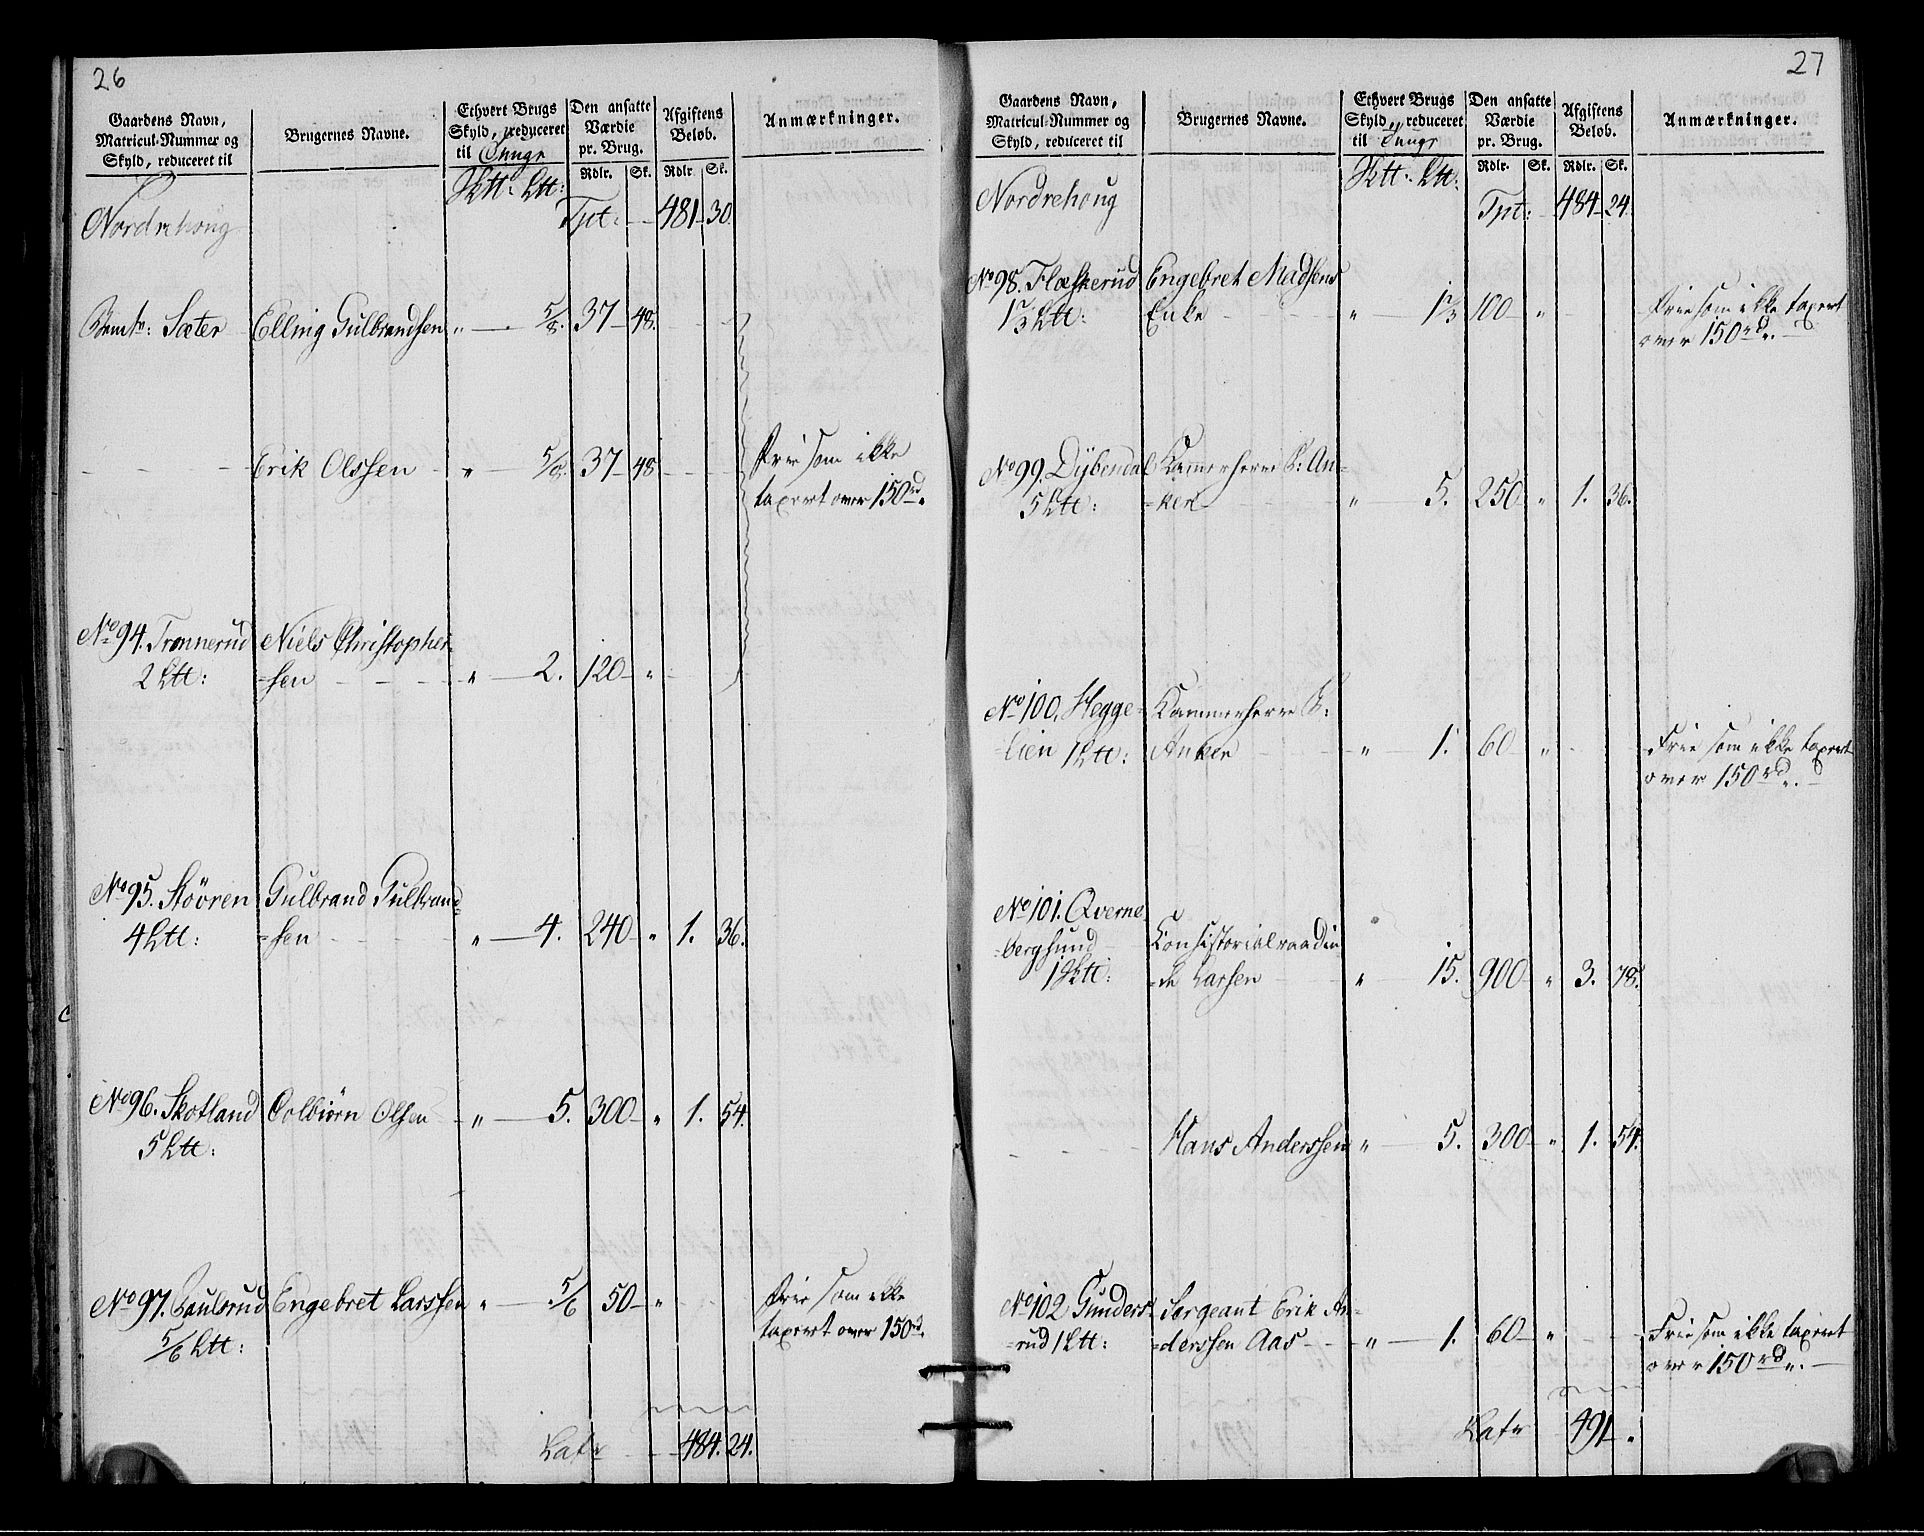 26
Gaardens Navn,
Matricul-Nummer og
Skyld, reduceret til
Brugernes Navne.
Ethvert Brugs
Skyld, reduceret
til Tunge
Den ansatte
Værdie
pr. Brug.
Afgiftens
Beløb.
Anmærkninger.
Rdlr. Sk. Rdlr. Sk.
Nordrehoug
Tpt: 481 30.
Sæter Elling Gulbrandsen „ 5/8. 37 48.
Erik Olssen „ 5/8. 37 48
Frie som ikke
taxeret over 150 rd.
No 94. Tronnerud Niels Christopher-
2 Ltt: -sen „ 2. 120 „
No 95. Stövren Gulbrand Gulbrand-
4 Ltt: -sen „ 4. 240 „ 1. 36.
No 96. Skotland Colbiörn Olsen „ 5. 300 „ 1. 54.
5 Ltt:
No 97. Paulsrud Engebret Larssen „ 5/6 50 „
5/6 Ltt:
Frie som ikke
taxeret over 150 rd.
Latr 484. 24.
27
Gaardens Navn,
Matricul-Nummer og
Skyld, reduceret til
Brugernes Navne.
Ethvert Brugs
Skyld, reduceret
til Tunge
Den ansatte
Værdie
pr. Brug.
Afgiftens
Beløb.
Anmærkninger.
Rdlr. Sk. Rdlr. Sk.
Nordrehoug
Tpt: 484 24.
No 98. Flaskerud Engebret Madsens
1 1/3 Ltt: Enke „ 1 1/3 100 „
Frie som ikke taxert
over 150 rd.
No 99. Dybendal Kammerherre P: An-
5 Ltt: -ker „ 5. 250 „ 1. 36.
No 100. Hegge- Kammerherre P:
-lien 1 Ltt: Anker „ 1. 60 „
Frie som ikke taxert
over 150 rd.
No 101. Qverne-
-bergsund Consistorialraadin-
-de Larsen „ 15. 900 „ 3. 78.
Hans Anderssen „ 5. 300 „ 1. 54.
No 102 Gunders- Sergeant Erik An-
-rud 1 Ltt: -derssen Aas „ 1. 60 „
Frie som ikke taxert
over 150 rd.
Latr 491 „